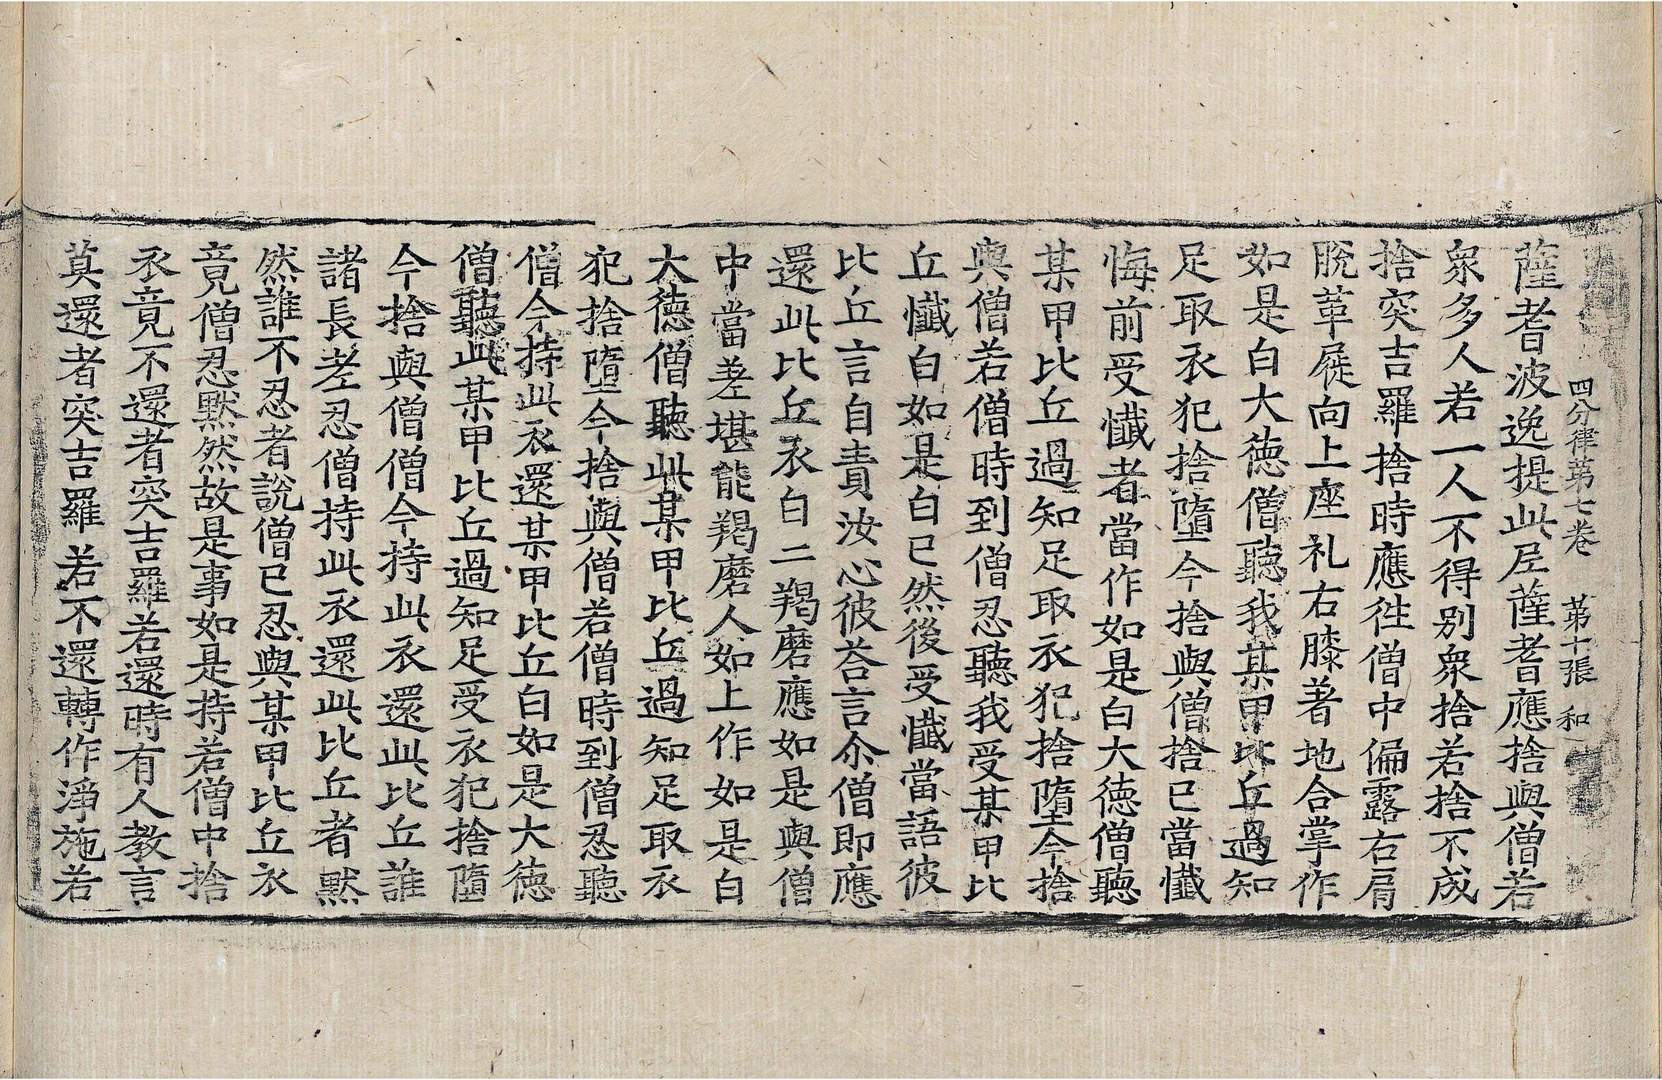 四分律苐七卷　苐十張　和
薩耆波逸提此尼薩耆應捨與僧若
衆多人若一人不得別衆捨若捨不成
捨突吉羅捨時應徃僧中偏露右肩
脫革屣向上座礼右膝著地合掌作
如是白大德僧聽我某甲比丘過知
足取衣犯捨墮今捨與僧捨已當懺
悔前受懺者當作如是白大德僧聽
某甲比丘過知足取衣犯捨墮今捨
與僧若僧時到僧忍聽我受某甲比
丘懺白如是白已然後受懺當語彼
比丘言自責汝心彼荅言尒僧即應
還此比丘衣白二羯磨應如是與僧
中當差堪能羯磨人如上作如是白
大德僧聽此某甲比丘過知足取衣
犯捨墮今捨與僧若僧時到僧忍聽
僧今持此衣還某甲比丘白如是大德
僧聽此某甲比丘過知足受衣犯捨墮
今捨與僧僧今持此衣還此比丘誰
諸長老忍僧持此衣還此比丘者默
然誰不忍者說僧已忍與某甲比丘衣
竟僧忍默然故是事如是持若僧中捨
衣竟不還者突吉羅若還時有人教言
莫還者突吉羅若不還轉作淨施若